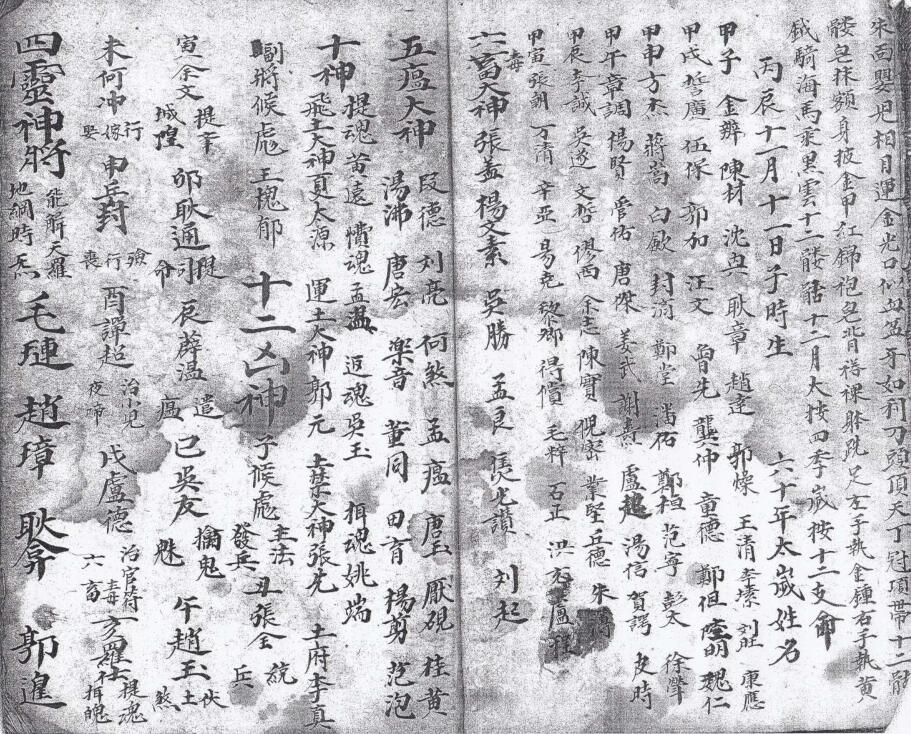 朱面嬰児相月運金光口似血盆牙如利刀頭頂天丁冠項帶十二骷
髏皂抹額身披金甲紅錦袍皂背褡裸躰跣足左手執金鍾右手執黄
鉞騎海馬乘黑雲十二髅骷十二月大技四季歲按十二支命
丙辰十一月十一日子時生 六十年太歲姓名
甲子 金辨 陳材 沈 耿章 趙達 郭燥 王清 李素 刘旺 康應
甲戌誓廣 伍保 郭加 汪文 魯先 龔仲 童德 鄭但 陸明 魏仁
甲申方杰 蔣嵩 白敏 封濟 鄭堂 潘佑 鄭桓 范寧 彭太 徐瑩
甲午章詞 楊賢 管佑 唐傑 姜武 謝熹 盧超 湯信 賀諤 皮時
甲辰李誠 吳遂 文哲 缪丙 余志 陳寶 猊密 葉堅 丘德 朱
甲寅張朝 万清 辛亞 易克 黎卿 得償 毛梓 石正 洪充 盧程
六畜大神 張盖 楊文素 吳勝 孟良 侯光讚 刘起
毒
五瘟大神 段德 刘亮 何煞 孟瘟 唐玉 厭硯 桂黄
湯沸 唐宏 楽音 董同 田育 楊剪 范泡
十神 提魂黄遠 憤魂孟温 返魂吳玉 捐魂姚端
飛土大神夏太源 運土大神郭元 土禁大神張先 土府李真
副將候彪 王槐郁 十二凶神 子候彪 主法發兵 丑張全 統兵
寅余文 提牢城隍 卯耿通 提司命 辰薜温 遣瘟 巳吳友 擒鬼魁 午趙玉 伏土煞
未何冲 行嫁娶 申丘封 殮行喪 酉譚起 治小児夜啼 戌盧德 治官符六畜毒 亥羅社 提魂捐魄
四靈神將 能解天羅地網時炁 毛璉 趙璋 耿弇 郭遑